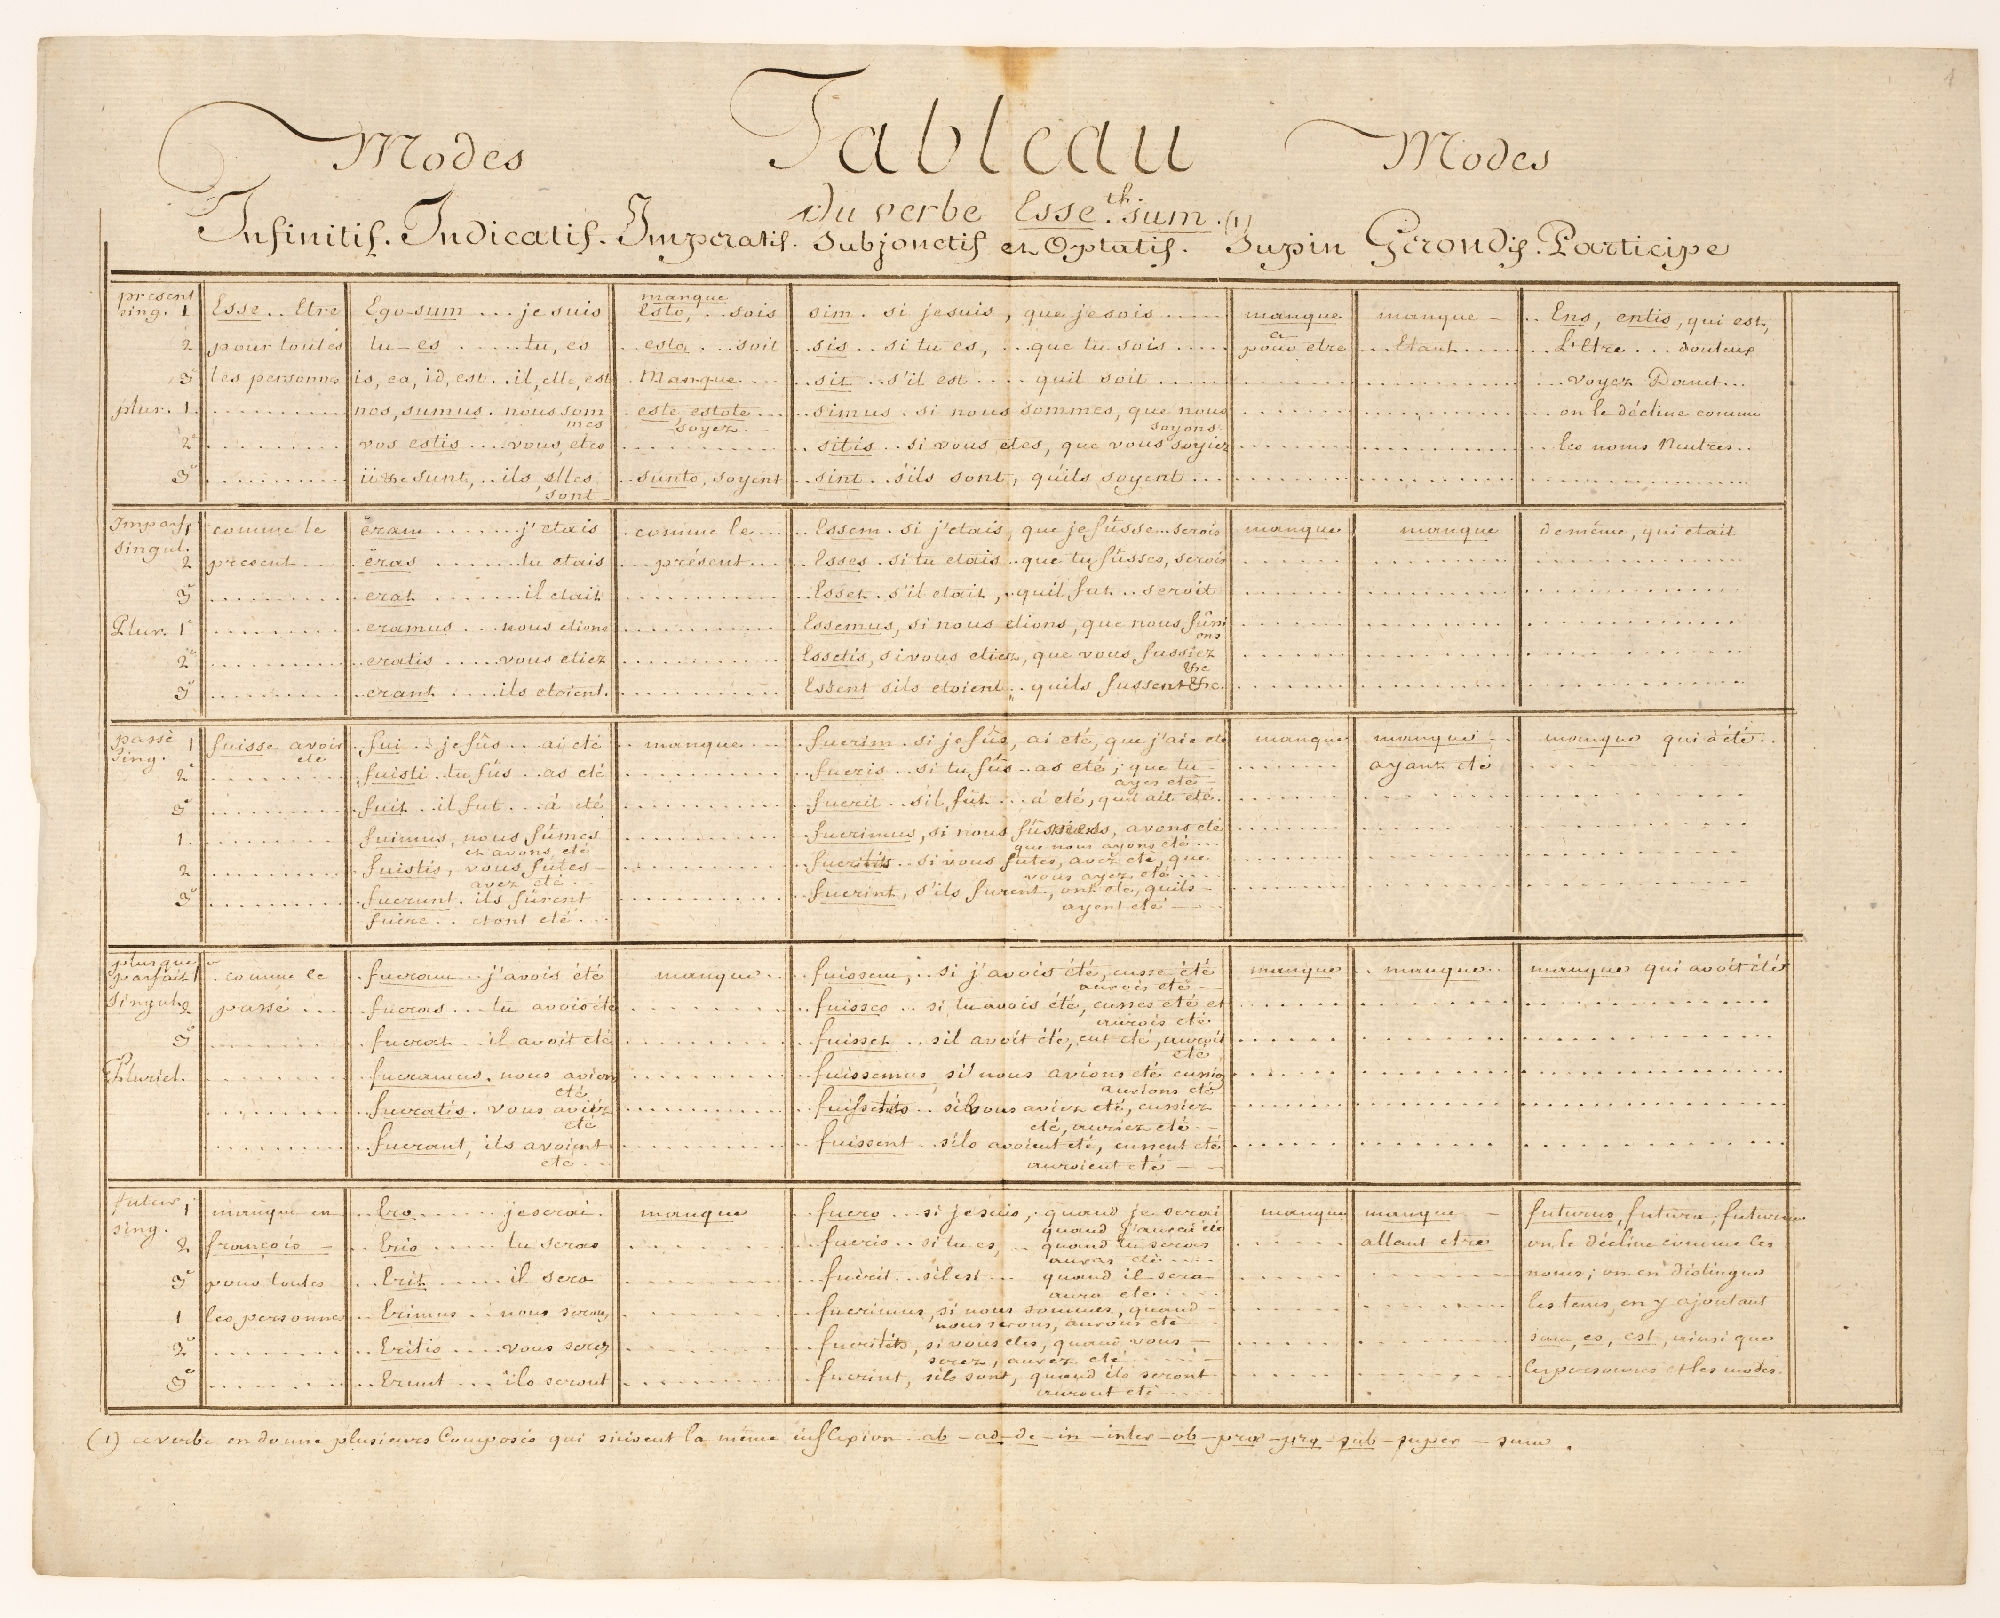 Modes Tableau Modes
Du verbe Esse. th. sum. (1)
Infinitif. Indicatif. Imperatif. Subjonctif et Optatif. Supin Gerondif. Participe
present manque
sing. 1 Esse .. Etre Ego-sum ... je suis Esto, .. sois sim. si je suis, que je sois ..... manque manque - .. Ens, entis, qui est,
2 pour toutes tu-es ..... tu, es esto ... soit sis .. si tu es, .. que tu sois ..... a pour etre .. Etant .... L'Etre ...
3e les personnes is, ea, id, est .. il, elle, est Manque.... sit .. s'il est .... quil soit ..... voyez
plur. 1 nos, sumus. nous sommes este estote ... soyez simus. si nous sommes, que nous soyons. on le décline comme
2e vos estis .... vous, etes sitis .. si vous etes, que vous soyiez les noms Neutres..
3e ii &c sunt, .. ils, elles sont sunto, soyent sint .. s'ils sont, qu'ils soyent ...
Imparf. 1 comme le eram ...... j'etais comme le .. Essem. si j'etais, que je fusse .. serois manque manque de même, qui etait
singul.
2 present .. eras ....... tu etais présent ... Esses. si tu etais .. que tu fusses, serois
3e erat ....... il etait Esset. s'il etait, .. quil fut .. seroit
Plur. 1e eramus .... nous etions Essemus, si nous etions, que nous fussions
2e eratis ..... vous etiez Essetis, si vous etiez, que vous fussiez &c
3e erant .... ils etoient. Essent sils etoient, quils fussent &c.
passé 1 fuisse avoir été fui .. je fûs ... ai eté manque ... fuerim. si je fûs, ai eté, que j'aie eté manque manque manque qui a été ..
sing.
2e fuisti . tu fûs .. as eté fueris .. si tu fûs .. as eté; que tu ayes eté ayant eté
3e fuit . il fut ... à eté fuerit .. s'il fut ... á eté, quil ait eté.
1. fuimus, nous fûmes et avons eté fuerimus, si nous , avons eté que nous ayons été ...
2 fuistis, vous fûtes avez eté fueritis .. si vous futes, avez eté, que vous ayez eté
3e fuerunt. ils fûrent fuerint, s'ils furent, ont eté, quils ayent eté
fuere .. et ont eté ...
plusque parfait 1 comme le fueram ... j'avois été manque .. fuissem, .. si j'avois été, eusse été aurois eté manque manque .. manque qui avoit été
Singul. 2 passé ... fueras ... tu avois été fuisses ... si tu avois été, eusses eté et aurois eté
3e fuerat .. il avoit eté fuisset .. sil avoit été, eut eté, auroit eté
Pluriel. fueramus. nous avions eté fuissemus, si nous avions eté eussions aurions eté
fueratis. vous aviez eté fuissetis .. si vous aviez eté, eussiez eté, auriez eté
fuerant, ils avoient eté fuissent .. sils avoient eté, eussent eté auroient eté
futur 1 manque en Ero ...... je serai. manque fuero ... si je suis, . quand je serai quand j'aurai eté manque manque - futurus, futura, futurum
sing.
2 françois - Eris ..... tu seras fueris .. si tu es, .. quand tu seras auras eté allant etre on le décline comme les
3e pour toutes Erit ..... il sera fuerit .. sil est ... quand il sera aura eté noms; on en distingue
1 les personnes Erimus ... nous serons fuerimus, si nous sommes, quand nous serons, aurons eté les tems, en y ajoutant
2e Eritis .... vous serez fueritis, si vous etes, quand vous serez, aurez eté sum, es, est, ainsi que
3e Erunt .... ils seront fuerint, sils sont, quand ils seront auront eté les personnes et les modes.
(1) ce verbe en donne plusieurs Composés qui suivent la même inflexion ab - ad - de - in - inter - ob - prae - pro - sub - super - sum .